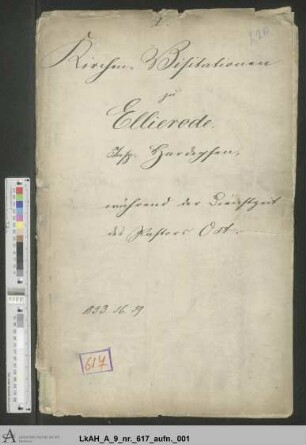 Kirchen-Visitationen
zu
Ellierode.
Insp. Hardegsen.
während der Dienstzeit
des Pastors Ost.
1853. 56. 59
617
LkAH_A_9_nr._617_aufn._001